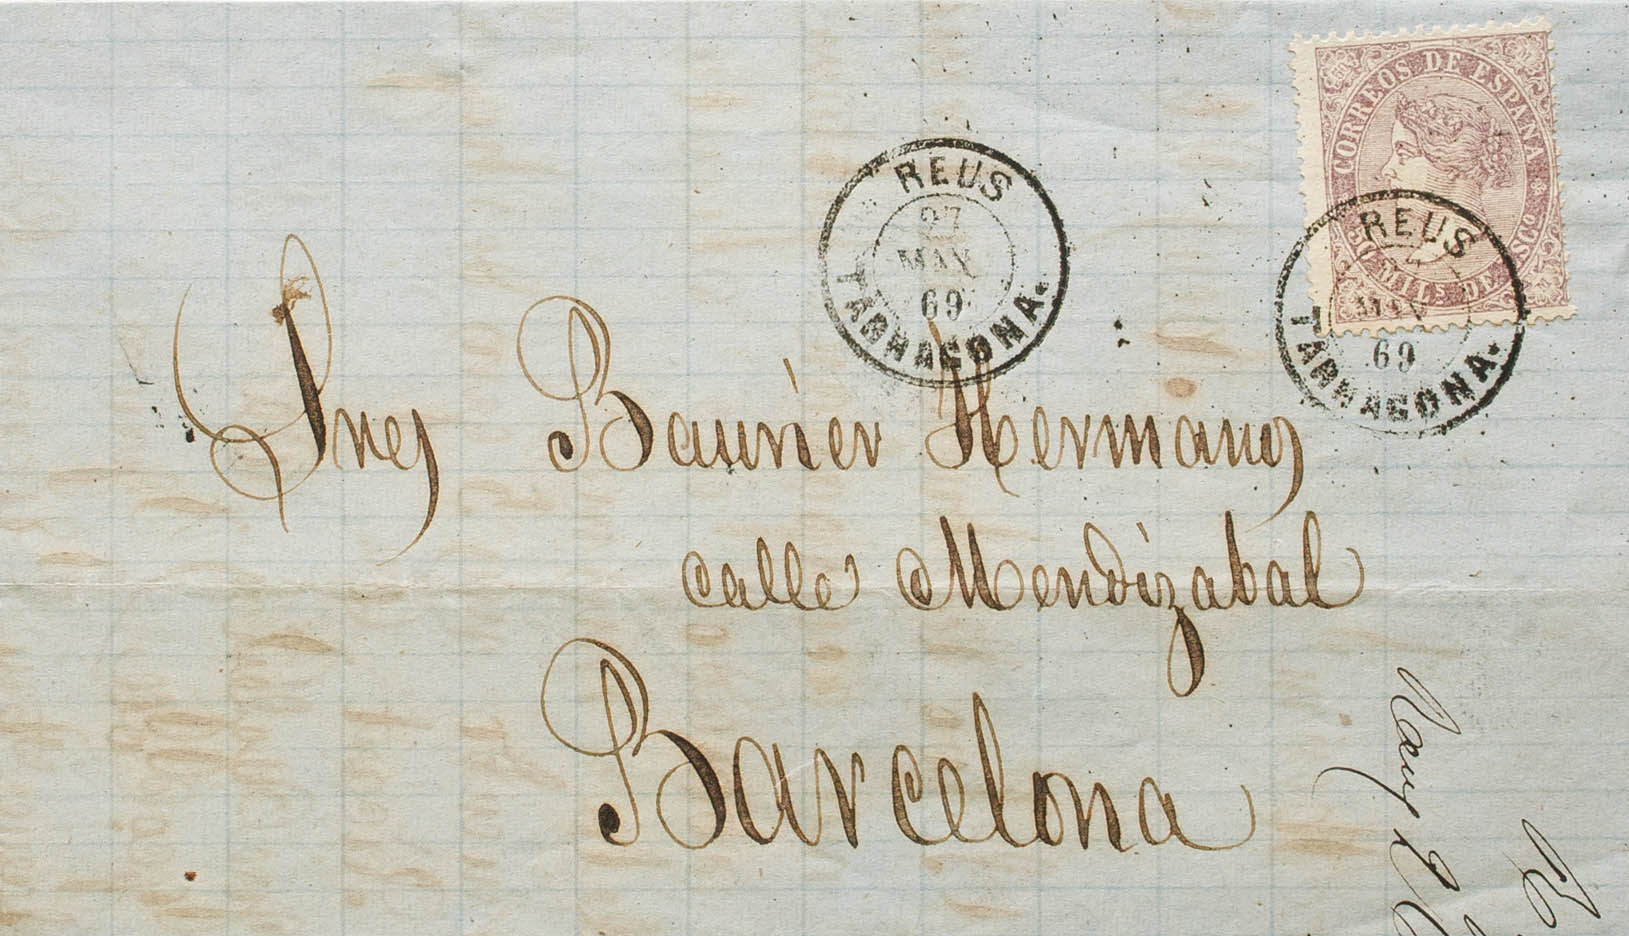 CORREOS DE ESPAÑA
50 MILS DE ESCO
REUS
27
MAY
69
TARRAGONA.
REUS
69
TARRAGONA.
Sres Baurier Hermanos
calle Mendizabal
Barcelona